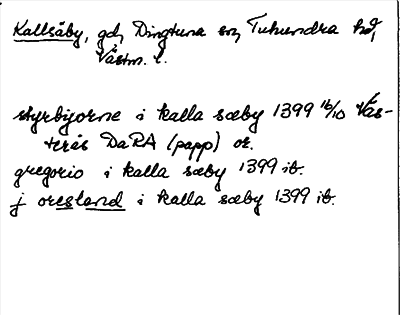 Kallsäby, gd, Dingtuna sn, Tuhundra hd,
Västm. l.
styrbyorne i kalla sæby 1399 16/10 Väs-
terås DaRA (papp) or.
gregorio i kalla sæby 1399 ib.
j orestand i kalla sæby 1399 ib.